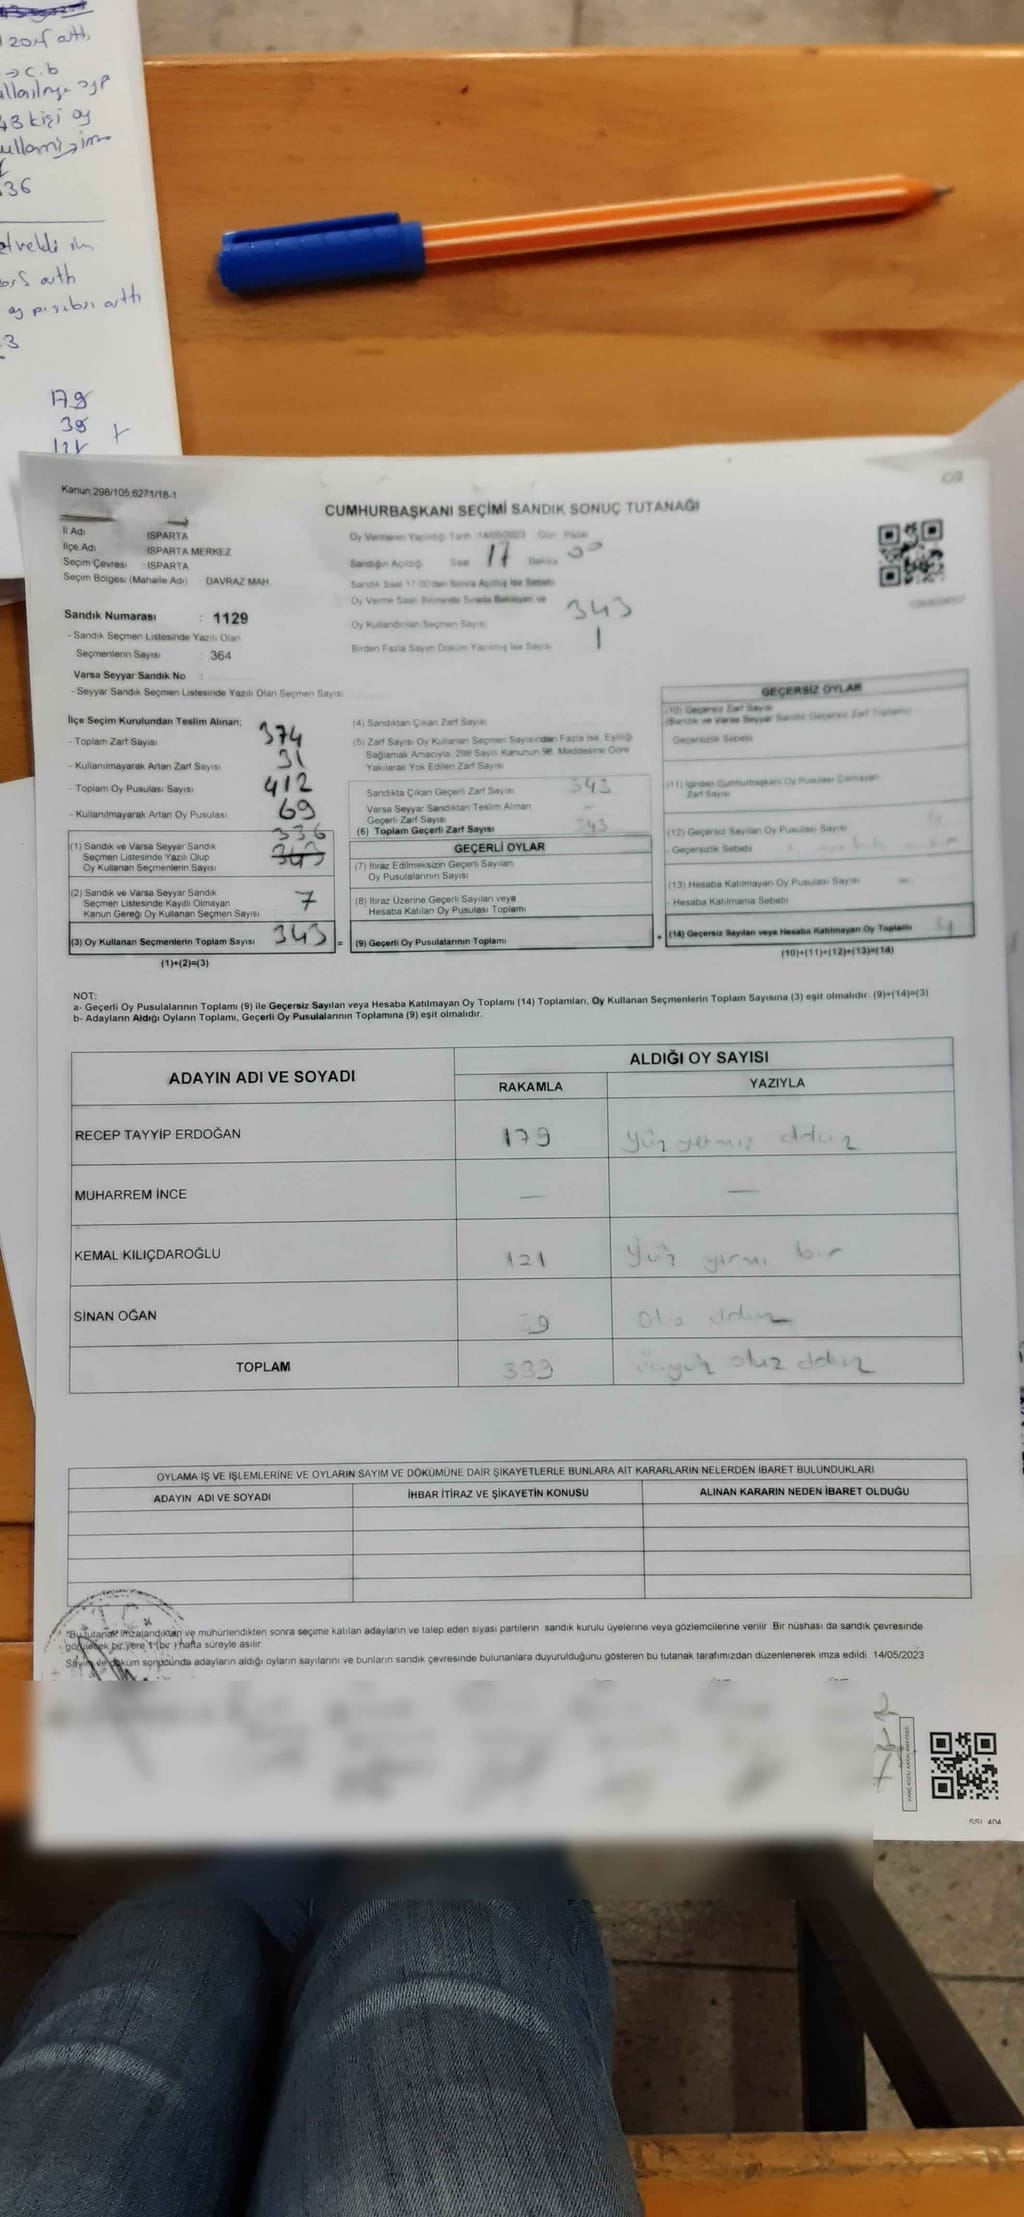 zarf arttı
→ c.b
48 kişi oy
336
oy pusulası arttı
179
39
121 +
Kanun:298/105;6271/18-1
CUMHURBAŞKANI SEÇİMİ SANDIK SONUÇ TUTANAĞI
İl Adı ISPARTA
İlçe Adı ISPARTA MERKEZ
Seçim Çevresi : ISPARTA
Seçim Bölgesi (Mahalle Adı) DAVRAZ MAH.
Oy Vermenin Yapıldığı Tarih 14/05/2023 Gün Pazar
Sandığın Açıldığı Saat 17 Dakika 00
Sandık Saat 17:00'den Sonra Açılmış İse Sebebi
Oy Verme Saati Bitiminde Sırada Bekleyen ve
Oy Kullandırılan Seçmen Sayısı 343
Birden Fazla Sayım Döküm Yapılmış İse Sayısı 1
Sandık Numarası : 1129
- Sandık Seçmen Listesinde Yazılı Olan
Seçmenlerin Sayısı : 364
Varsa Seyyar Sandık No :
- Seyyar Sandık Seçmen Listesinde Yazılı Olan Seçmen Sayısı:
İlçe Seçim Kurulundan Teslim Alınan;
- Toplam Zarf Sayısı 374
- Kullanılmayarak Artan Zarf Sayısı 31
- Toplam Oy Pusulası Sayısı 412
- Kullanılmayarak Artan Oy Pusulası 69
(1) Sandık ve Varsa Seyyar Sandık
Seçmen Listesinde Yazılı Olup
Oy Kullanan Seçmenlerin Sayısı 336 343
(2) Sandık ve Varsa Seyyar Sandık
Seçmen Listesinde Kayıtlı Olmayan
Kanun Gereği Oy Kullanan Seçmen Sayısı 7
(3) Oy Kullanan Seçmenlerin Toplam Sayısı 343 =
(1)+(2)=(3)
(4) Sandıktan Çıkan Zarf Sayısı
(5) Zarf Sayısı Oy Kullanan Seçmen Sayısından Fazla İse, Eşitliği
Sağlamak Amacıyla, 298 Sayılı Kanunun 98. Maddesine Göre
Yakılarak Yok Edilen Zarf Sayısı
Sandıkta Çıkan Geçerli Zarf Sayısı 343
Varsa Seyyar Sandıktan Teslim Alınan
Geçerli Zarf Sayısı -
(6) Toplam Geçerli Zarf Sayısı 343
GEÇERLİ OYLAR
(7) İtiraz Edilmeksizin Geçerli Sayılan
Oy Pusulalarının Sayısı
(8) İtiraz Üzerine Geçerli Sayılan veya
Hesaba Katılan Oy Pusulası Toplamı
(9) Geçerli Oy Pusulalarının Toplamı +
GEÇERSİZ OYLAR
(10) Geçersiz Zarf Sayısı
(Sandık ve Varsa Seyyar Sandık Geçersiz Zarf Toplamı)
- Geçersizlik Sebebi
(11) İçinden Cumhurbaşkanı Oy Pusulası Çıkmayan
Zarf Sayısı
(12) Geçersiz Sayılan Oy Pusulası Sayısı
- Geçersizlik Sebebi
(13) Hesaba Katılmayan Oy Pusulası Sayısı -
- Hesaba Katılmama Sebebi
(14) Geçersiz Sayılan veya Hesaba Katılmayan Oy Toplamı
(10)+(11)+(12)+(13)=(14)
NOT:
a- Geçerli Oy Pusulalarının Toplamı (9) ile Geçersiz Sayılan veya Hesaba Katılmayan Oy Toplamı (14) Toplamları, Oy Kullanan Seçmenlerin Toplam Sayısına (3) eşit olmalıdır. (9)+(14)=(3)
b- Adayların Aldığı Oyların Toplamı, Geçerli Oy Pusulalarının Toplamına (9) eşit olmalıdır.
ADAYIN ADI VE SOYADI
ALDIĞI OY SAYISI
RAKAMLA YAZIYLA
RECEP TAYYİP ERDOĞAN 179 Yüz yetmiş dokuz
MUHARREM İNCE — —
KEMAL KILIÇDAROĞLU 121 Yüz yirmi bir
SİNAN OĞAN 39 Otuz dokuz
TOPLAM 339 üçyüz otuz dokuz
OYLAMA İŞ VE İŞLEMLERİNE VE OYLARIN SAYIM VE DÖKÜMÜNE DAİR ŞİKAYETLERLE BUNLARA AİT KARARLARIN NELERDEN İBARET BULUNDUKLARI
ADAYIN ADI VE SOYADI İHBAR İTİRAZ VE ŞİKAYETİN KONUSU ALINAN KARARIN NEDEN İBARET OLDUĞU
*Bu tutanak imzalandıktan ve mühürlendikten sonra seçime katılan adayların ve talep eden siyasi partilerin sandık kurulu üyelerine veya gözlemcilerine verilir Bir nüshası da sandık çevresinde
görülecek bir yere 1 (bir ) hafta süreyle asılır
Sayım ve döküm sonucunda adayların aldığı oyların sayılarını ve bunların sandık çevresinde bulunanlara duyurulduğunu gösteren bu tutanak tarafımızdan düzenlenerek imza edildi 14/05/2023
SSİ 404